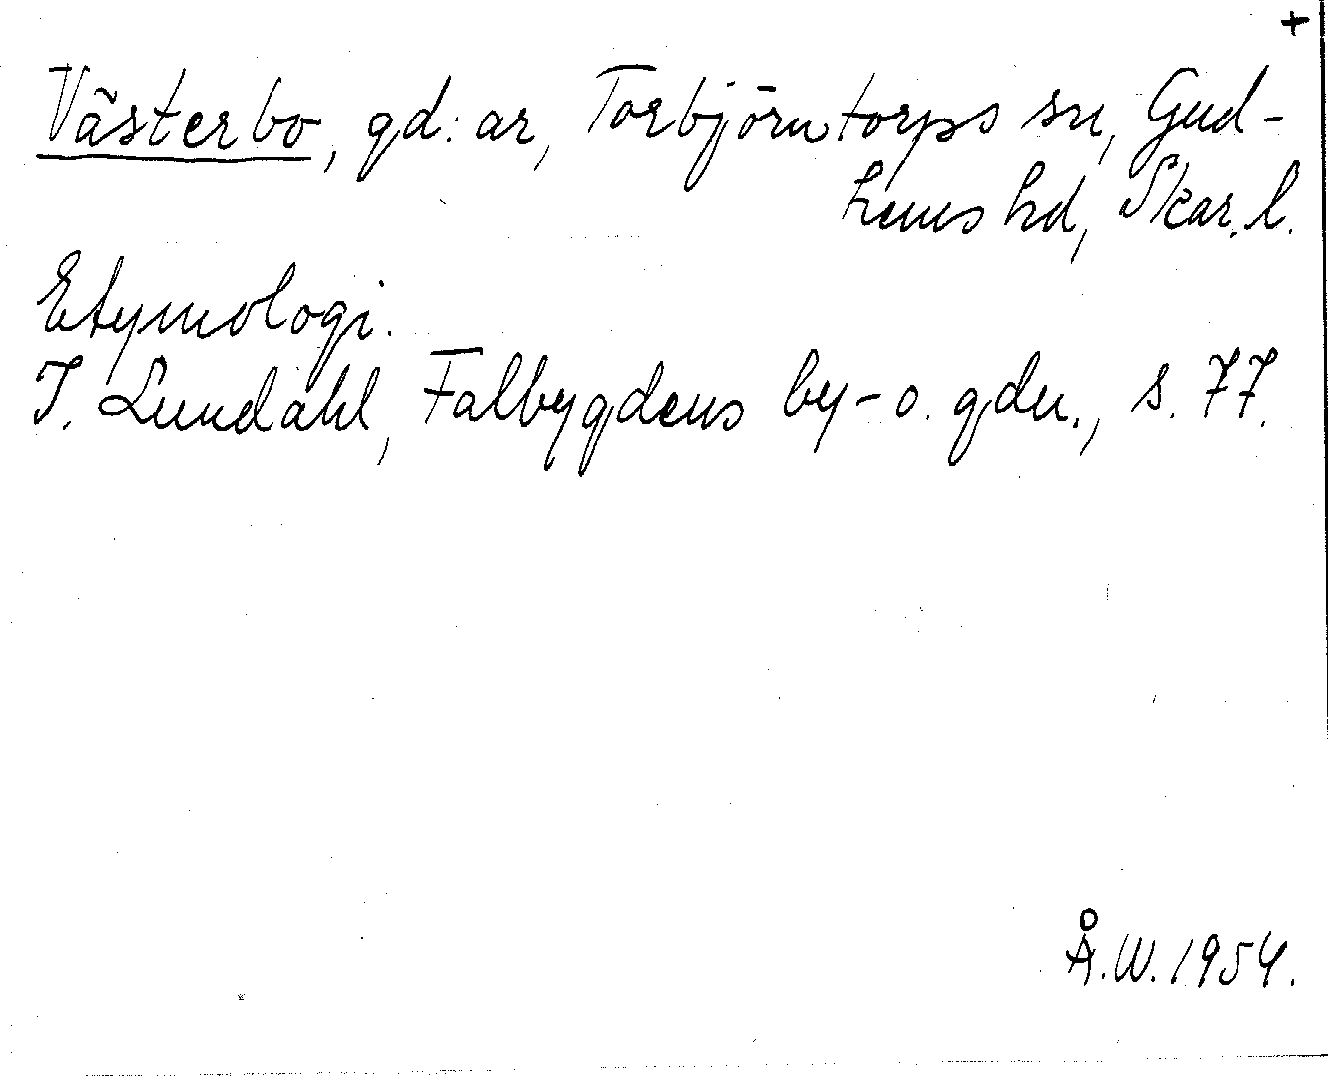 +
Västerbo, gd:ar, Torbjörntorps sn, Gud-
hems hd, Skar. l.
Etymologi.
I. Lundahl, Falbygdens by- o. gdn., s. 77.
Å.W. 1954.